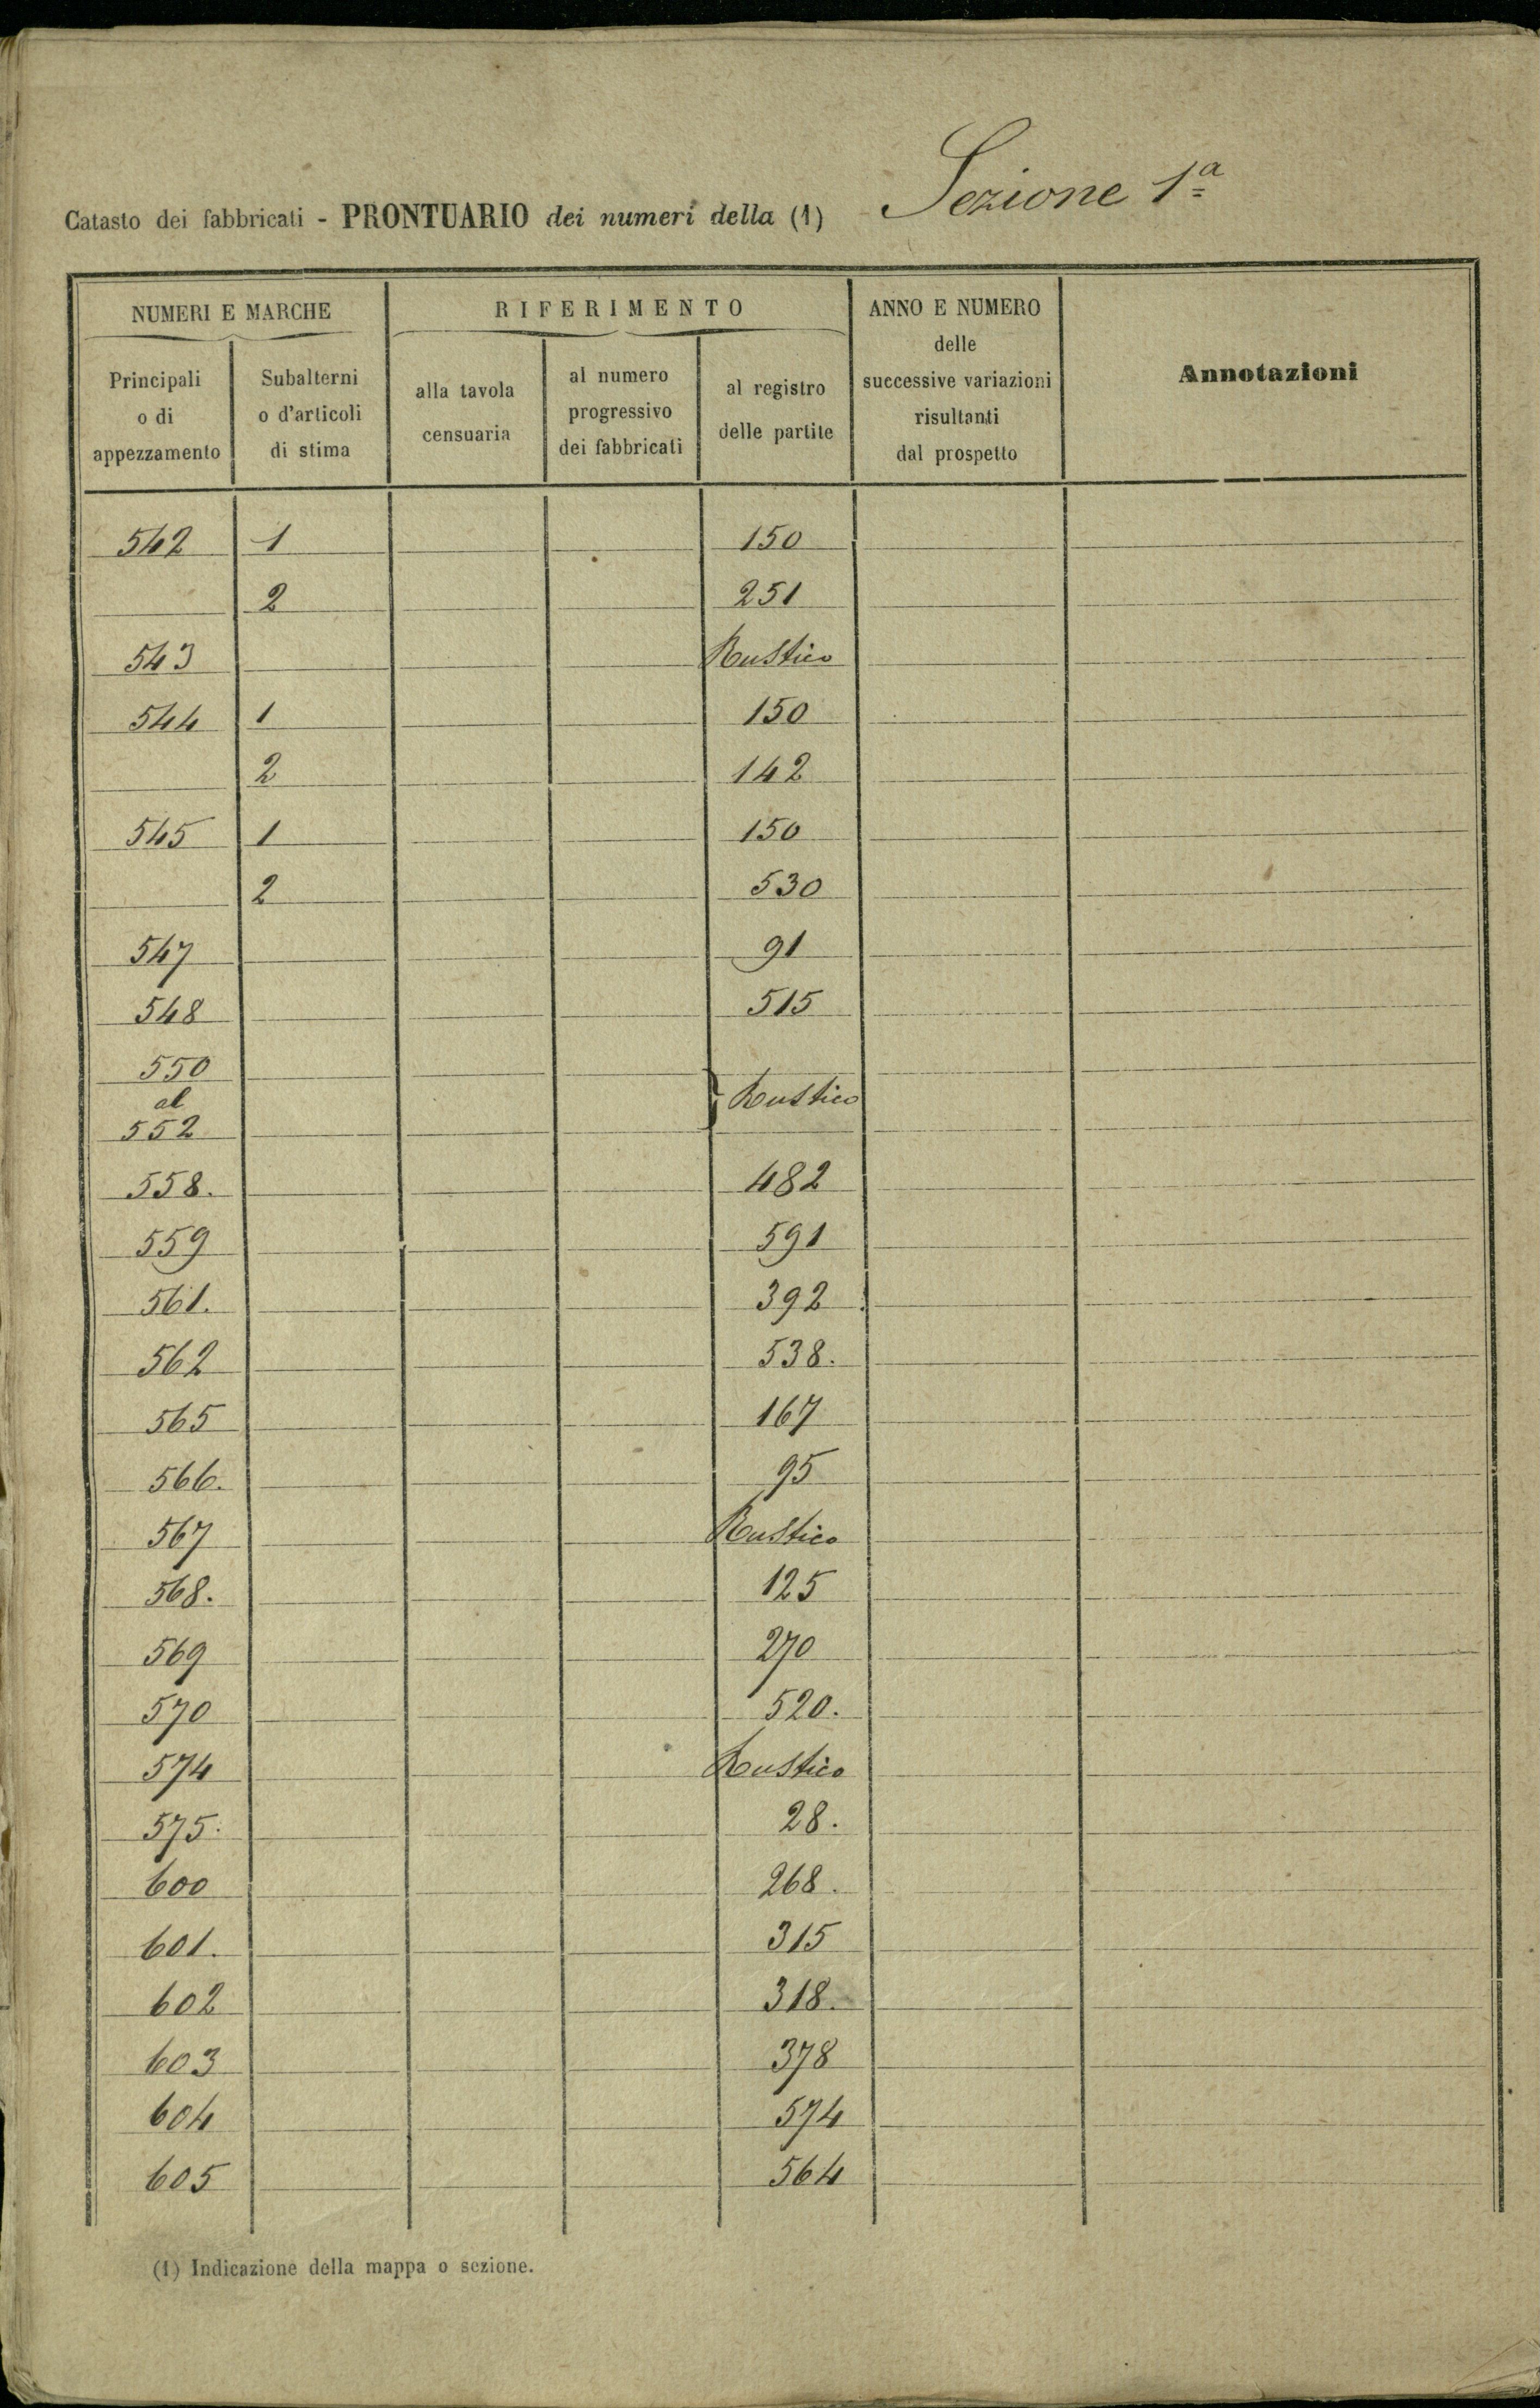 Catasto dei fabbricati - PRONTUARIO dei numeri della (1) Sezione 1ª
NUMERI E MARCHE
RIFERIMENTO
ANNO E NUMERO
delle
successive variazioni
risultanti
dal prospetto
Annotazioni
Principali
o di
appezzamento
Subalterni
o d'articoli
di stima
alla tavola
censuaria
al numero
progressivo
dei fabbricati
al registro
delle partite
542 1 150
2 251
543 Rustico
544 1 150
2 142
545 1 150
2 530
547 91
548 515
550
al } Rustico
552
558. 482
559 591
561. 392
562 538.
565 167
566. 95
567 Rustico
568. 125
569 270
570 520.
574 Rustico
575. 28.
600 268.
601. 315
602 318.
603 378
604 574
605 564
(1) Indicazione della mappa o sezione.